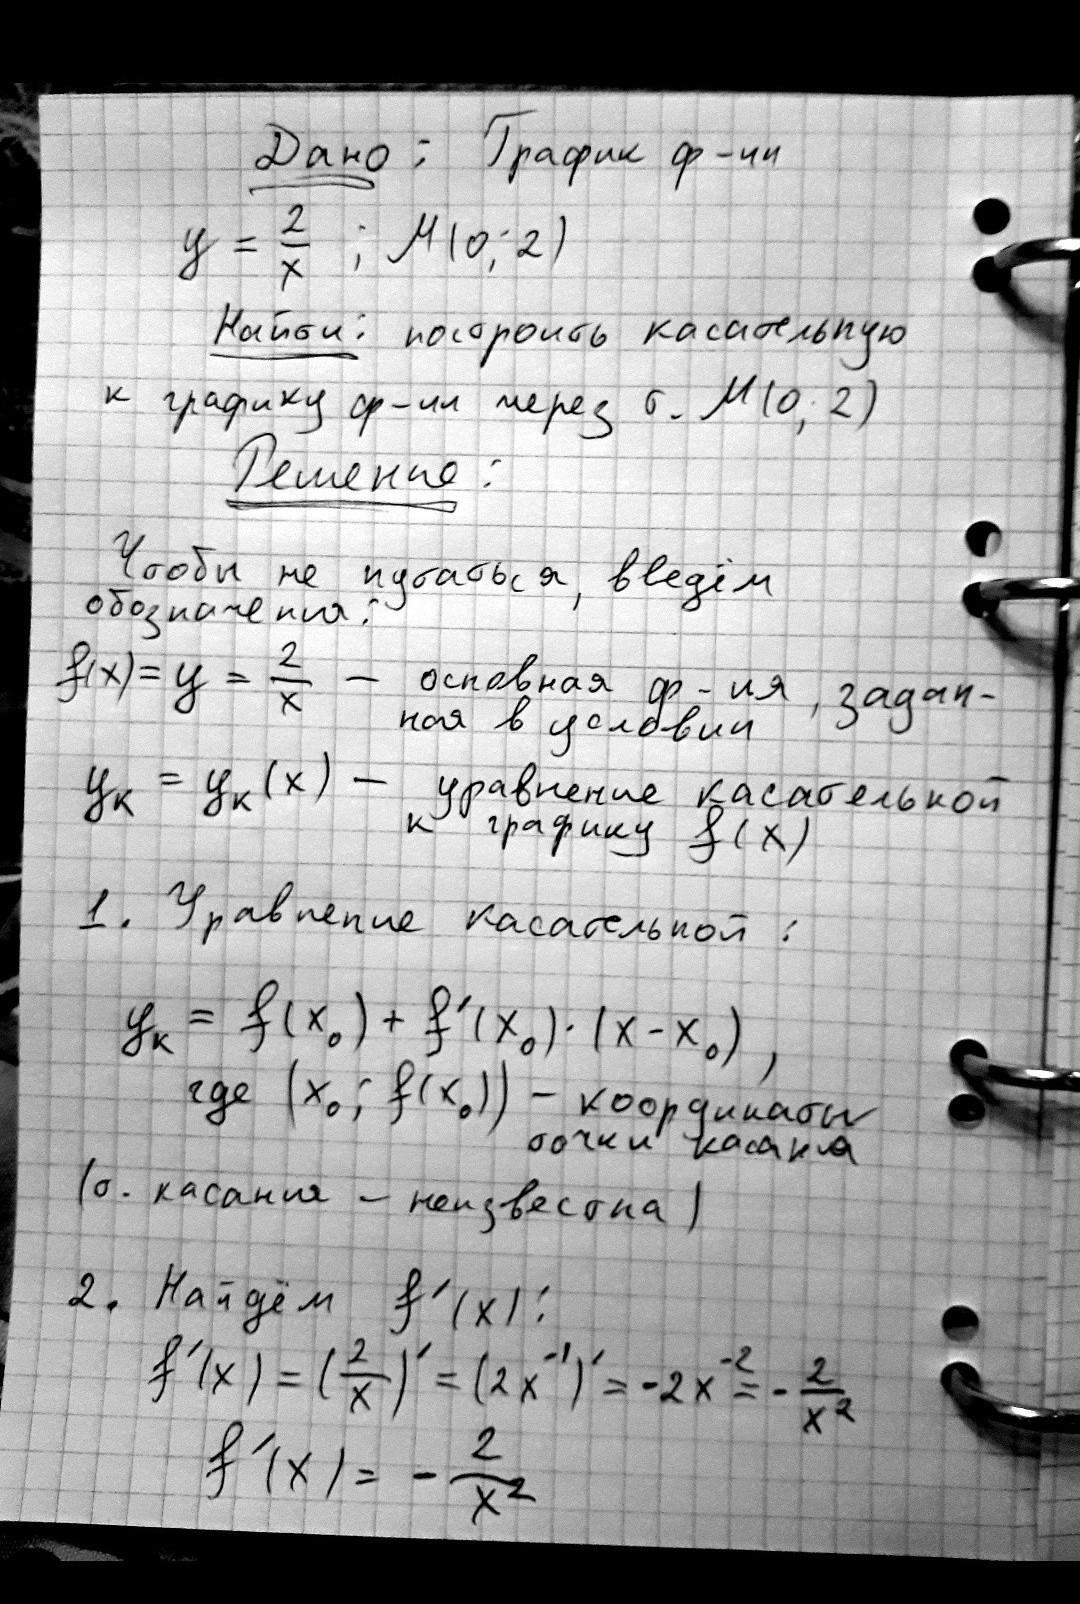 Дано: График ф-ии
y = 2/x ; M(0; 2)
Найти: построить касательную
к графику ф-ии через т. M(0; 2)
Решение:
Чтобы не путаться, введём
обозначения:
f(x) = y = 2/x — основная ф-ия, задан-
ная в условии
yк = yк(x) — уравнение касательной
к графику f(x)
1. Уравнение касательной:
yк = f(x₀) + f′(x₀)·(x - x₀),
где (x₀; f(x₀)) — координаты
точки касания
(т. касания — неизвестна)
2. Найдём f′(x):
f′(x) = (2/x)′ = (2x⁻¹)′ = -2x⁻² = -2/x²
f′(x) = -2/x²